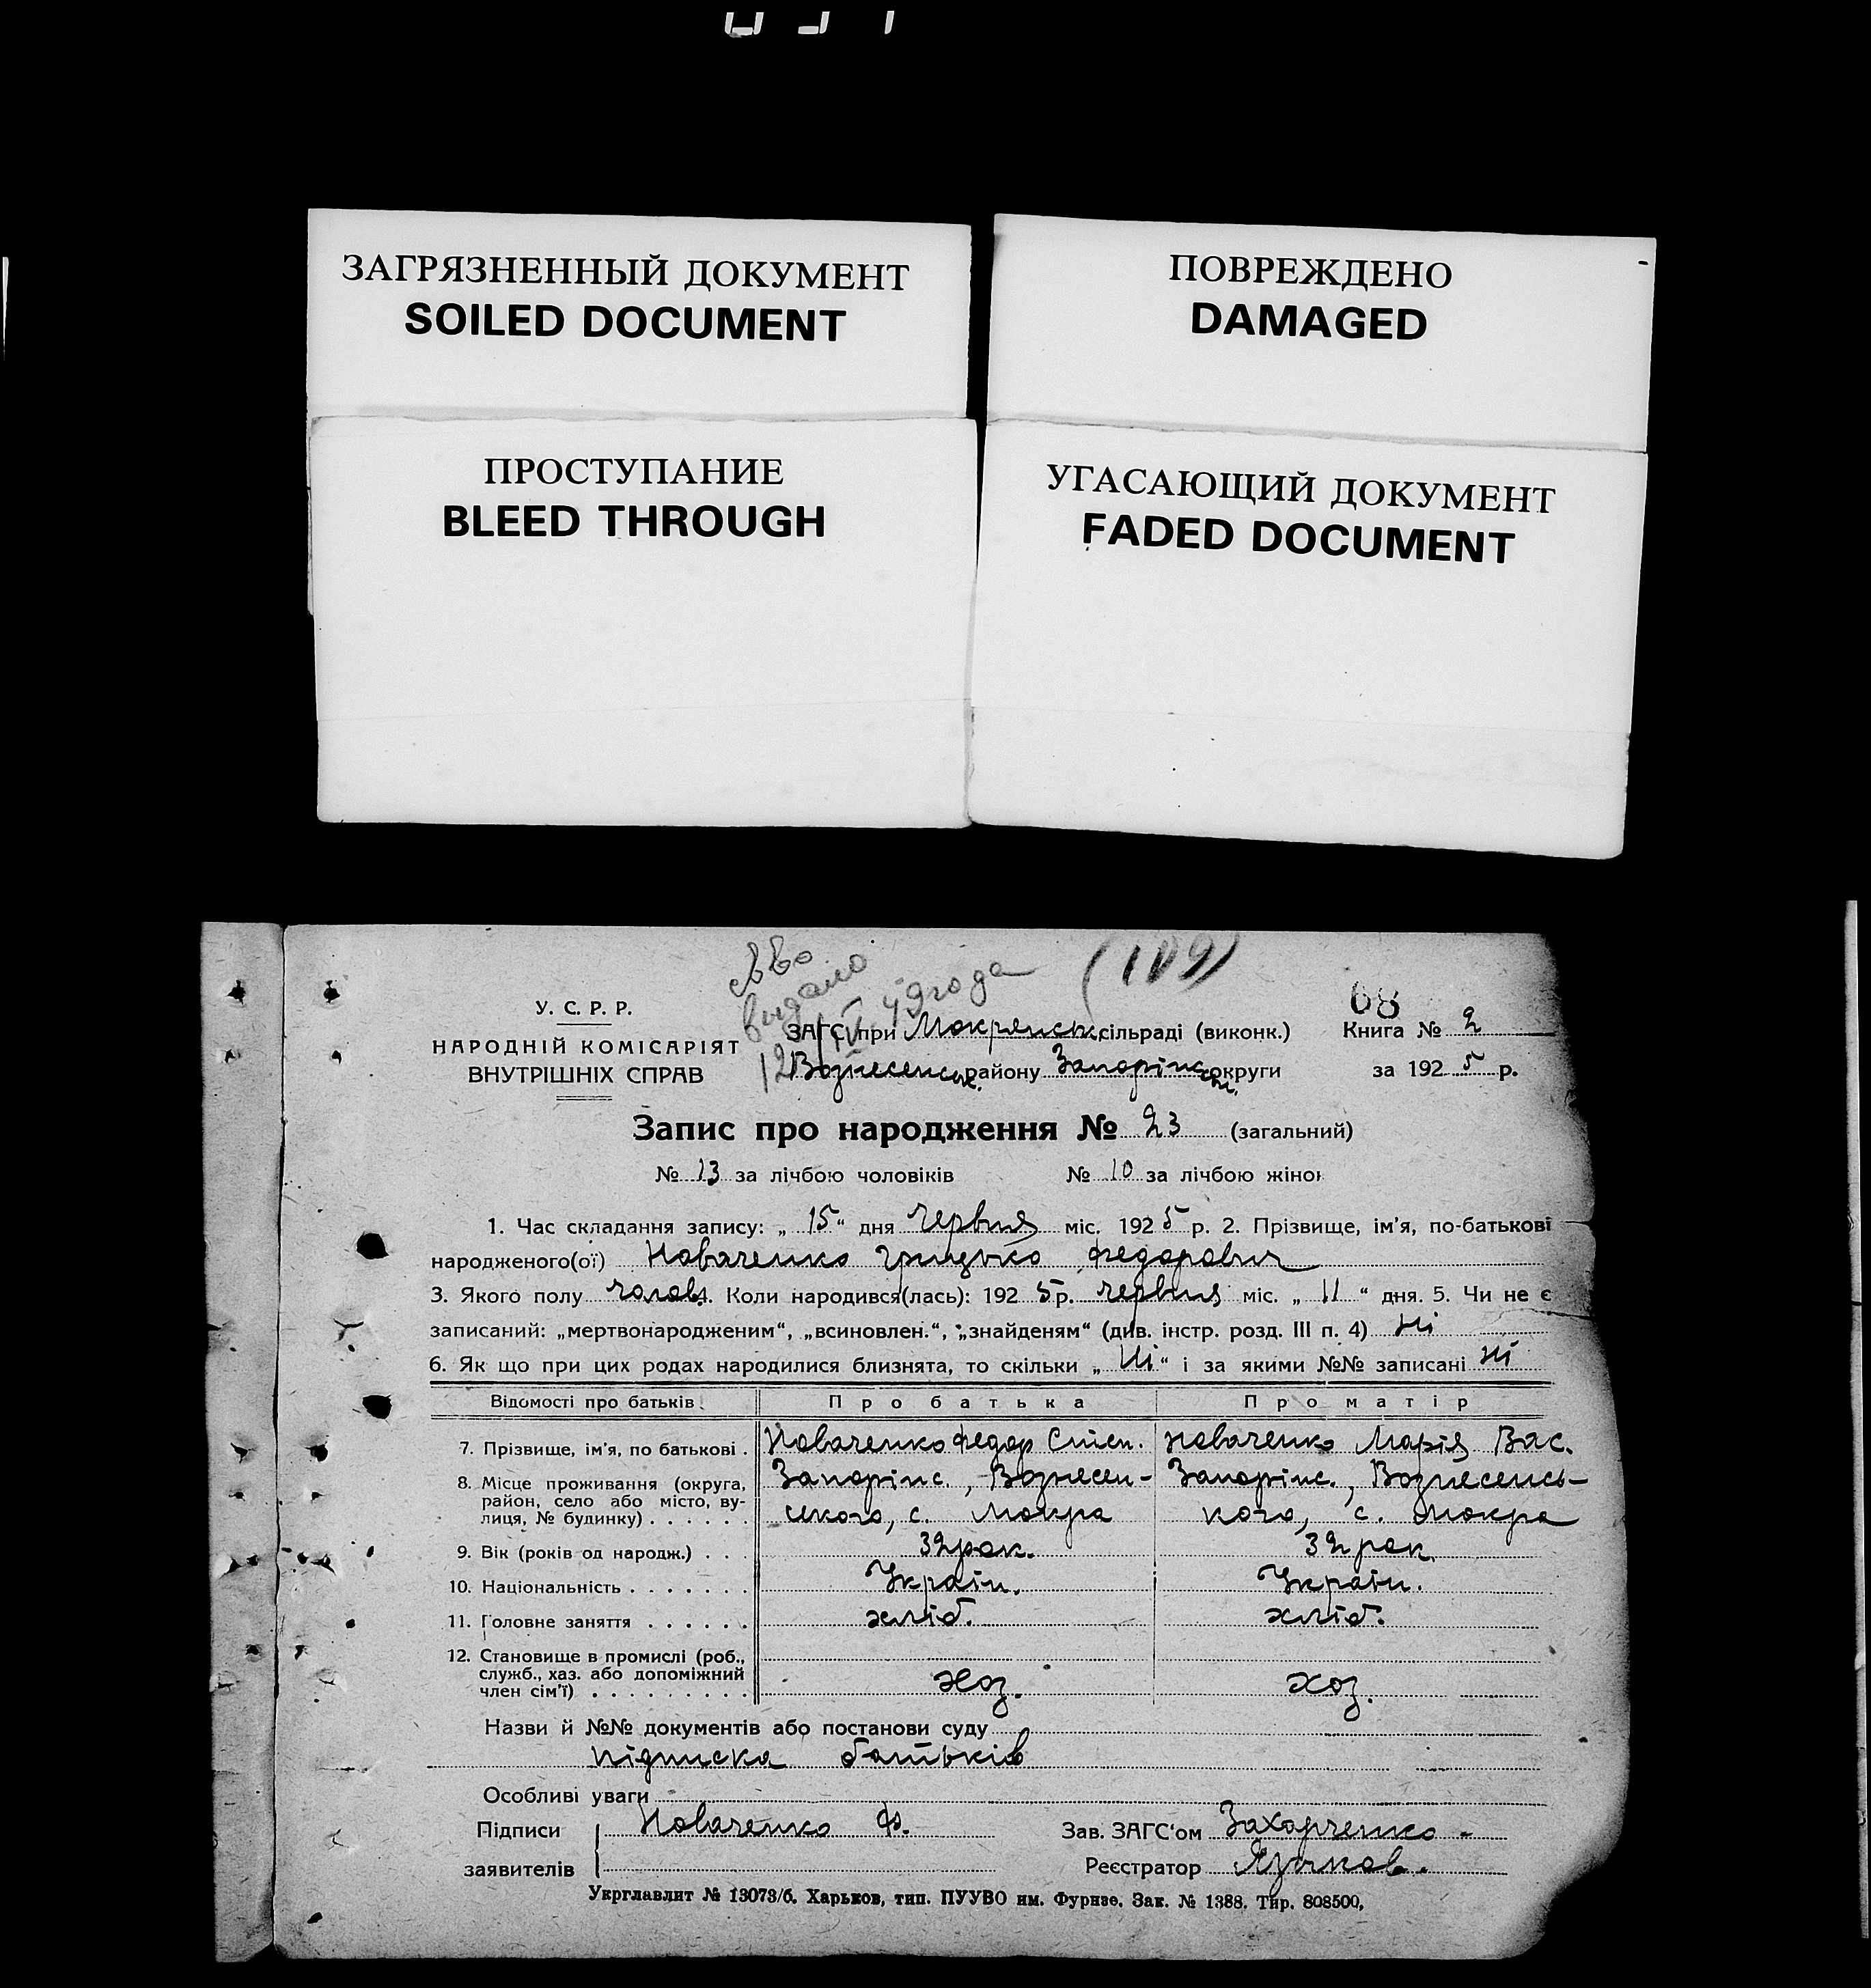 ЗАГРЯЗНЕННЫЙ ДОКУМЕНТ
SOILED DOCUMENT
ПОВРЕЖДЕНО
DAMAGED
ПРОСТУПАНИЕ
BLEED THROUGH
УГАСАЮЩИЙ ДОКУМЕНТ
FADED DOCUMENT
(109)
св во
выдано
12/IV 49 года
68
У. С. Р. Р.
НАРОДНІЙ КОМІСАРІЯТ
ВНУТРІШНІХ СПРАВ
ЗАГС при Мокрянськ. сільраді (виконк.) Книга № 2
Вознесенськ. району Запоріжськ. округи за 1925 р.
Запис про народження № 23 (загальний)
№ 13 за лічбою чоловіків № 10 за лічбою жінок
1. Час складання запису: „15“ дня червня міс. 1925 р. 2. Прізвище, ім'я, по-батькові
народженого(ої) Новаченко Грицько Федорович
3. Якого полу чолов. 4. Коли народився(лась): 1925 р. червня міс. „11“ дня. 5. Чи не є
записаний: „мертвонародженим“, „всиновлен.“, „знайденям“ (див. інстр. розд. III п. 4) ні
6. Як що при цих родах народилися близнята, то скільки „ні“ і за якими №№ записані ні
Відомості про батьків Про батька Про матір
7. Прізвище, ім'я, по батькові . Новаченко Федор Степ. Новаченко Марія Вас.
8. Місце проживання (округа, район, село або місто, вулиця, № будинку) . . . . . . Запоріжс., Вознесен- Запоріжс., Вознесенсь-
ського, с. Мокра кого, с. Мокра
9. Вік (років од народж.) . . . 32 рок. 32 рок.
10. Національність . . . . . . . Україн. Україн.
11. Головне заняття . . . . . . хліб. хліб.
12. Становище в промислі (роб., служб., хаз. або допоміжний член сім'ї) . . . . . . . . . хоз. хоз.
Назви й №№ документів або постанови суду
підписка батьків
Особливі уваги
Підписи Новаченко Ф. Зав. ЗАГС'ом Захарченко
заявителів Реєстратор Язиков.
Укрглавлит № 13073/б. Харьков, тип. ПУУВО им. Фрунзе. Зак. № 1388. Тир. 808500,